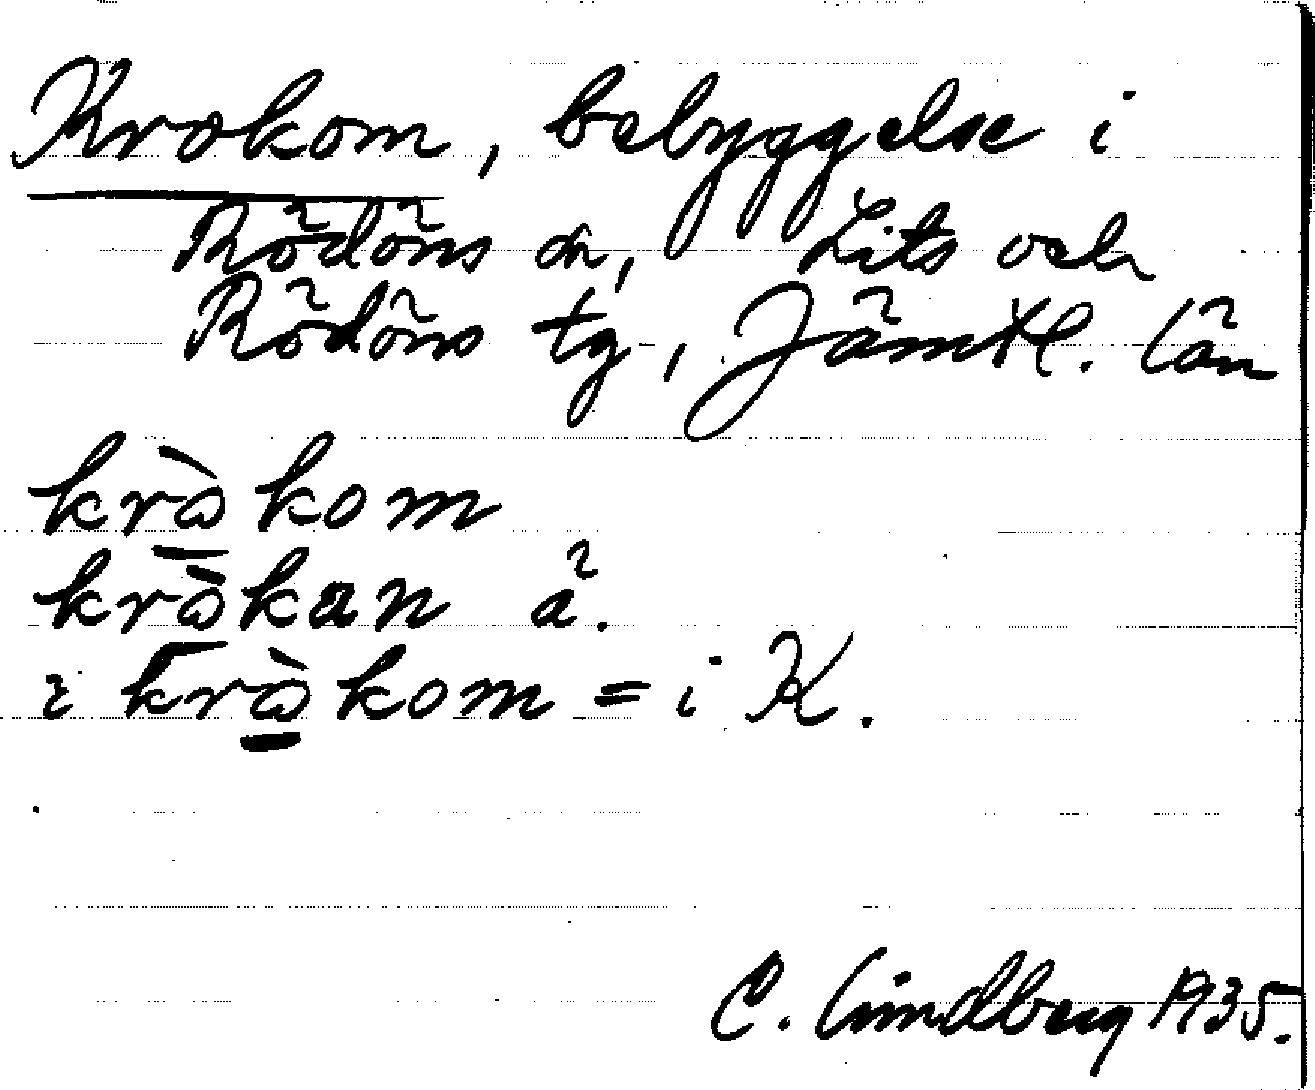 Krokom, bebyggelse i
Rödöns sn, Lits och
Rödöns tg, Jämtl. län
krɷ̀kom
krɷ̀kan å.
i krɷ̀kom = i K.
C. Lindberg 1935.